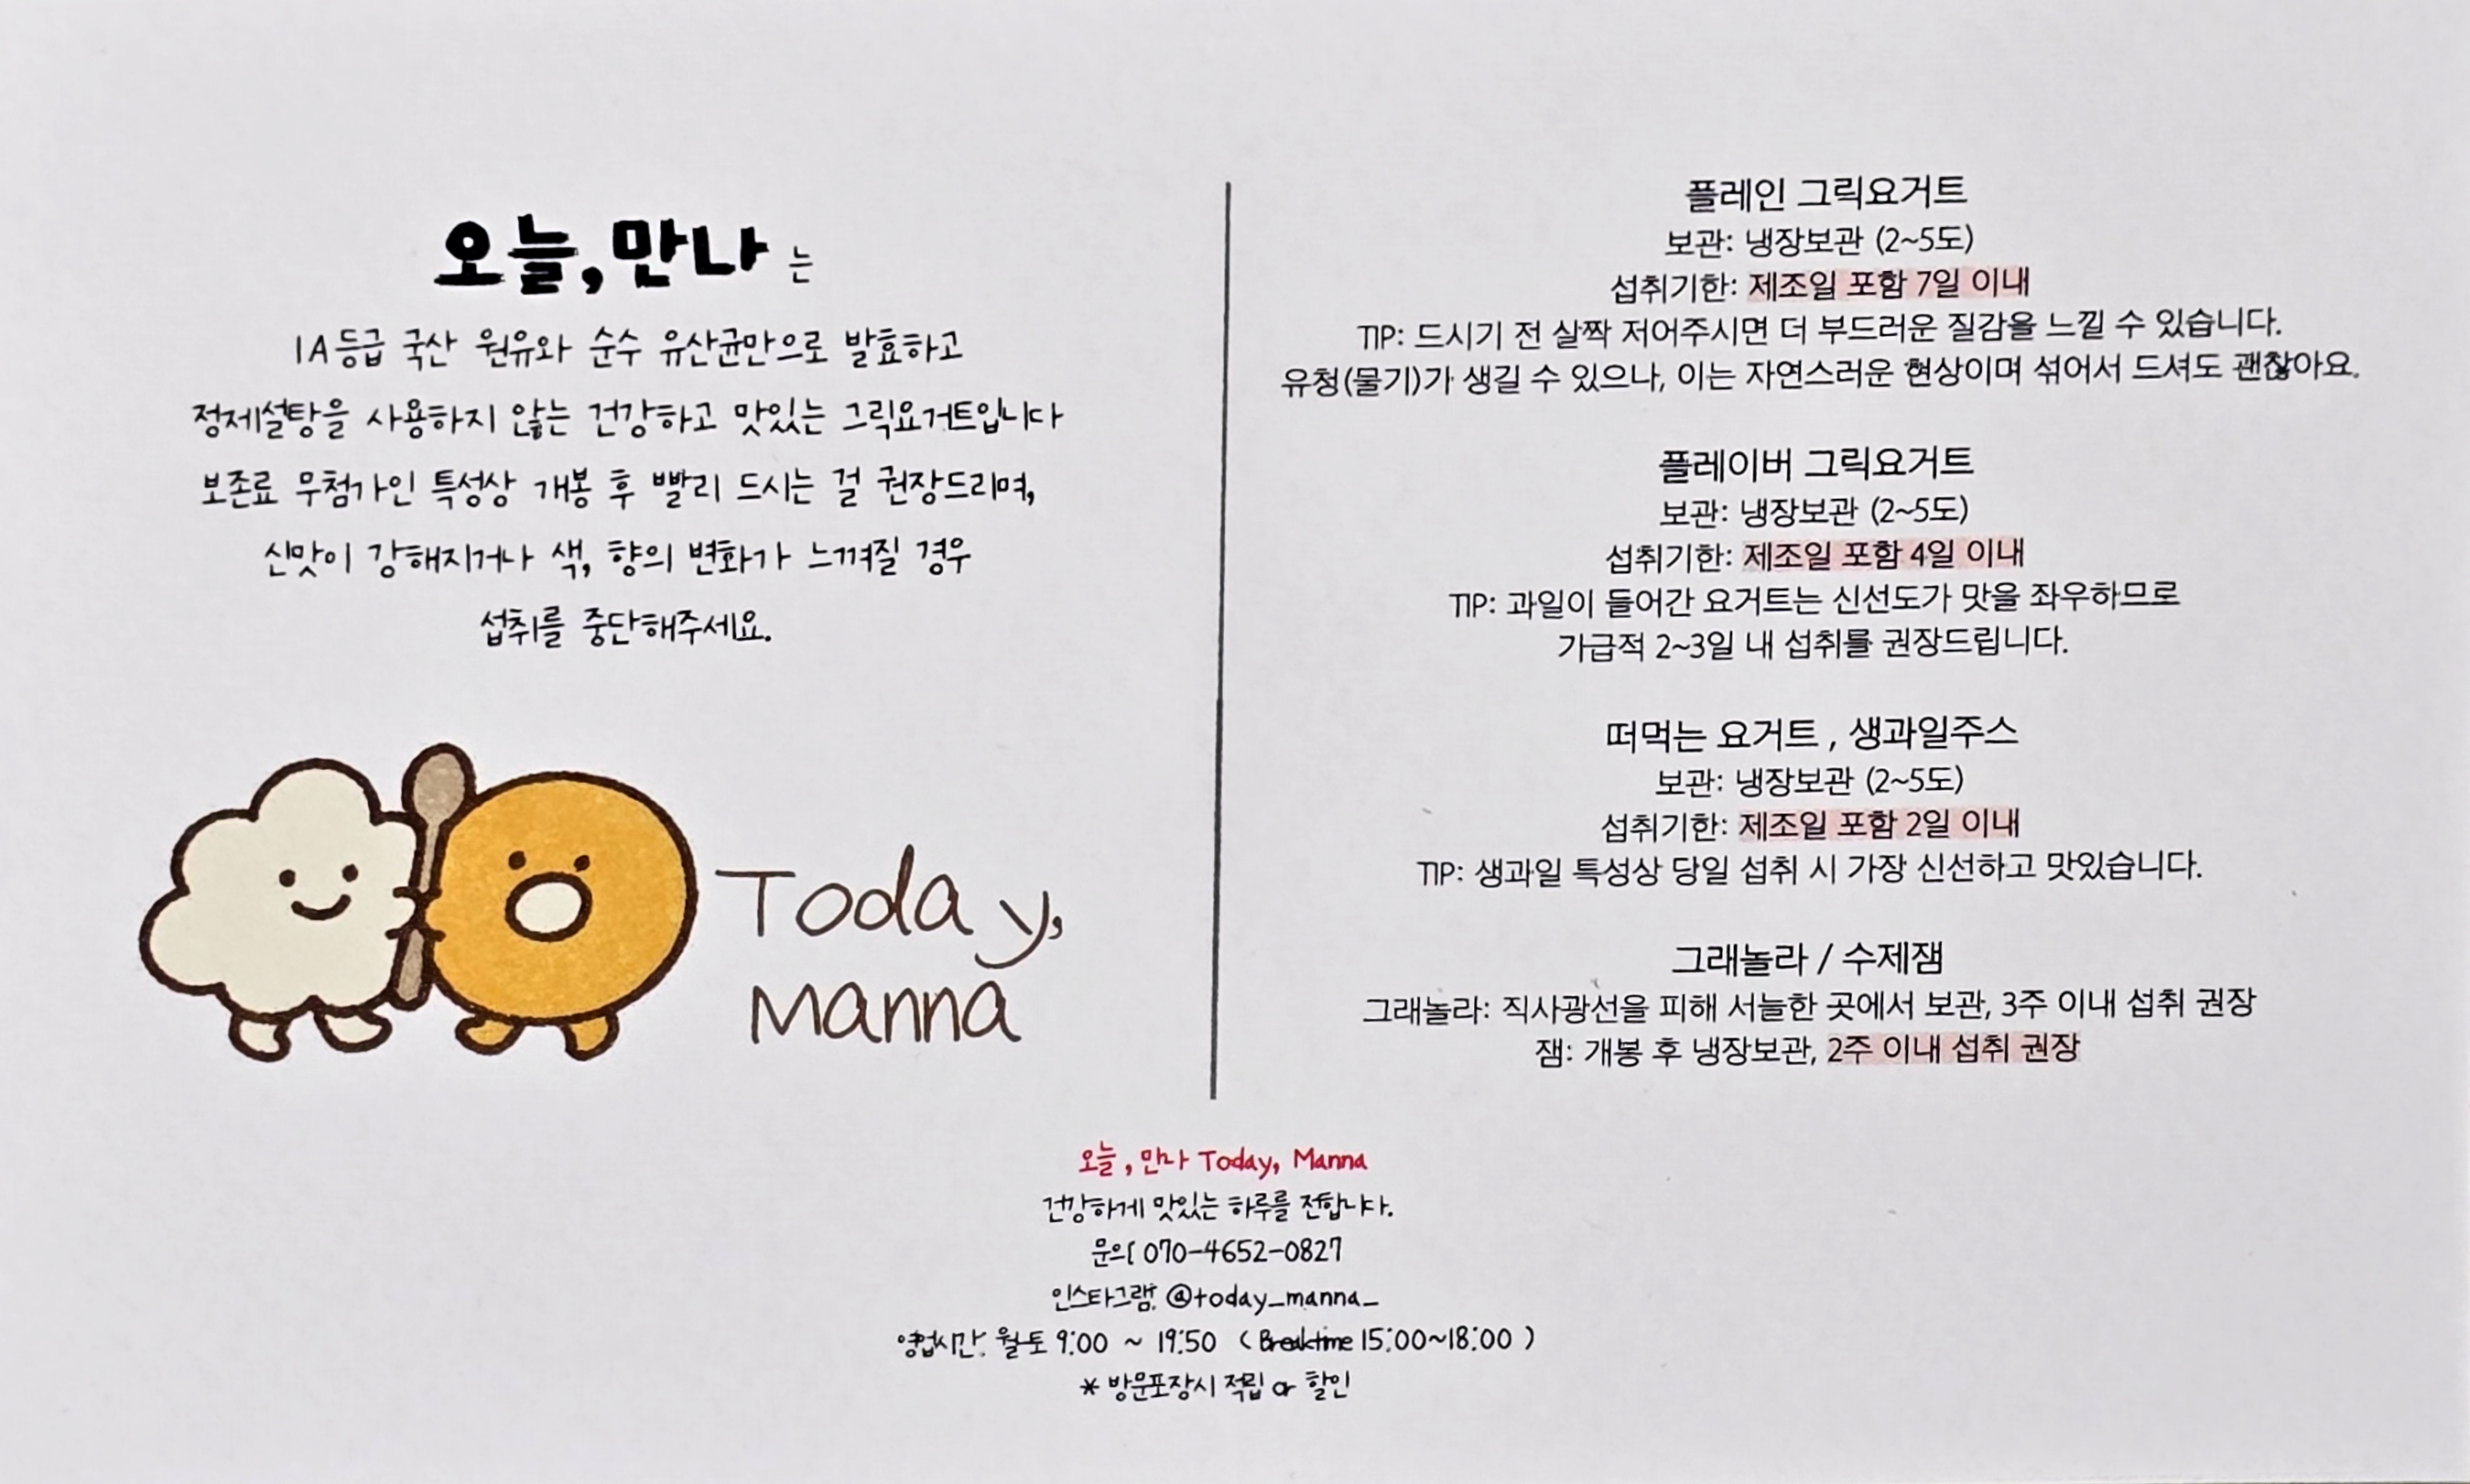 오늘, 만나 는
1A등급 국산 원유와 순수 유산균만으로 발효하고
정제설탕을 사용하지 않는 건강하고 맛있는 그릭요거트입니다
보존료 무첨가인 특성상 개봉 후 빨리 드시는 걸 권장드리며,
신맛이 강해지거나 색, 향의 변화가 느껴질 경우
섭취를 중단해주세요.
Today,
Manna
플레인 그릭요거트
보관: 냉장보관 (2~5도)
섭취기한: 제조일 포함 7일 이내
TIP: 드시기 전 살짝 저어주시면 더 부드러운 질감을 느낄 수 있습니다.
유청(물기)가 생길 수 있으나, 이는 자연스러운 현상이며 섞어서 드셔도 괜찮아요.
플레이버 그릭요거트
보관: 냉장보관 (2~5도)
섭취기한: 제조일 포함 4일 이내
TIP: 과일이 들어간 요거트는 신선도가 맛을 좌우하므로
가급적 2~3일 내 섭취를 권장드립니다.
떠먹는 요거트 , 생과일주스
보관: 냉장보관 (2~5도)
섭취기한: 제조일 포함 2일 이내
TIP: 생과일 특성상 당일 섭취 시 가장 신선하고 맛있습니다.
그래놀라 / 수제잼
그래놀라: 직사광선을 피해 서늘한 곳에서 보관, 3주 이내 섭취 권장
잼: 개봉 후 냉장보관, 2주 이내 섭취 권장
오늘, 만나 Today, Manna
건강하게 맛있는 하루를 전합니다.
문의 070-4652-0827
인스타그램: @today_manna_
영업시간: 월-토 9:00 ~ 19:50 ( Breaktime 15:00~18:00 )
* 방문포장시 적립 or 할인